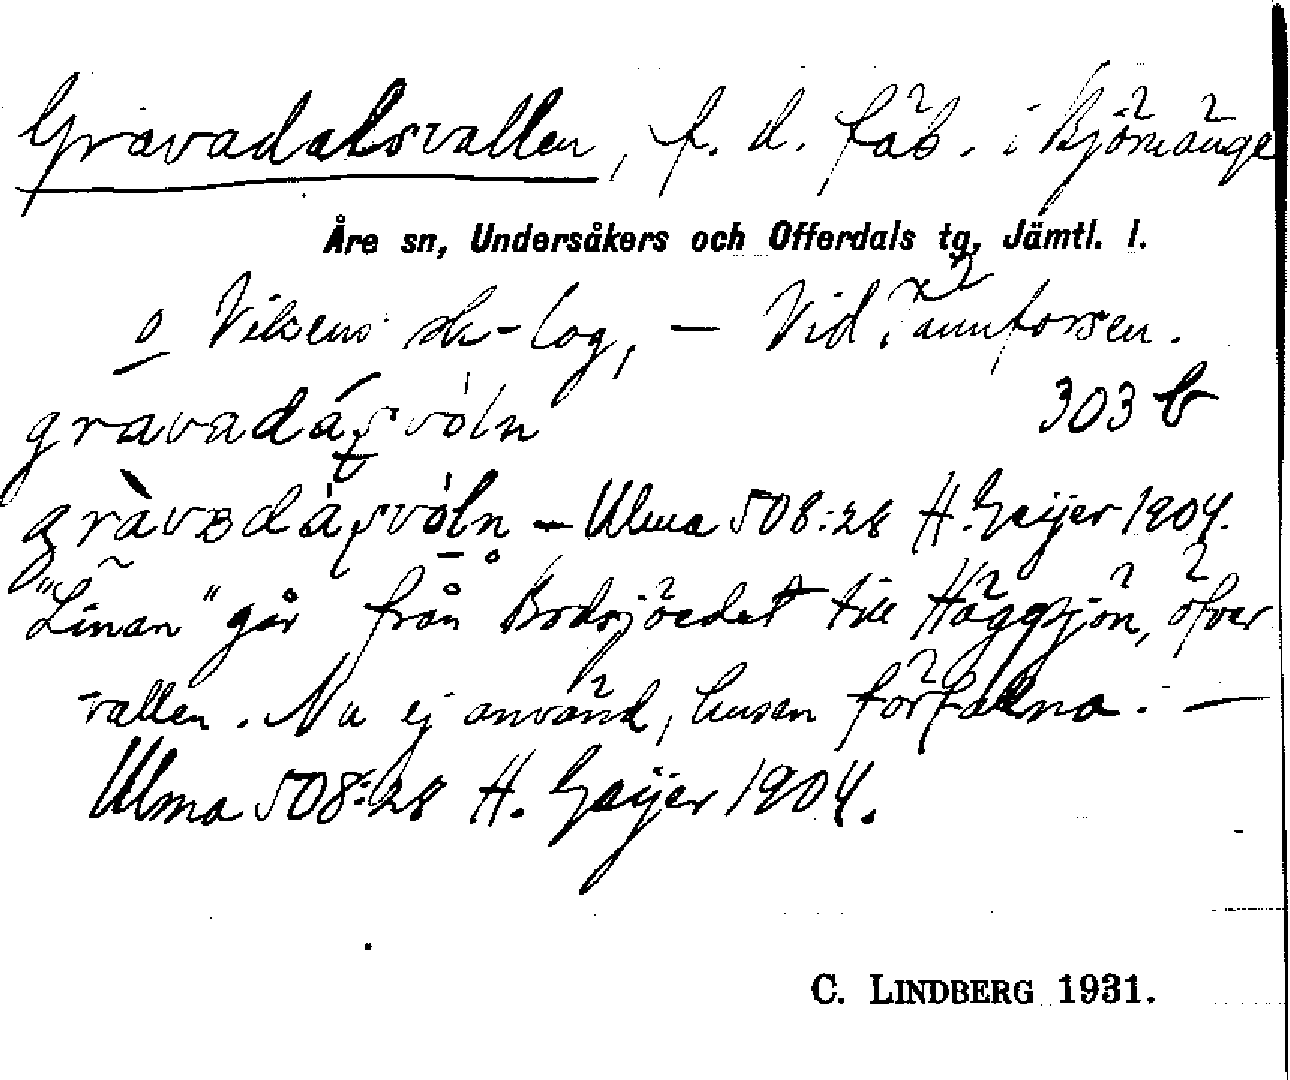 Gravadalsvallen, f. d. fäb. i Björnänge
Åre sn, Undersåkers och Offerdals tg, Jämtl. l.
o Vikens sk-lag, – Vid Tännforsen.
gravadáʃvóln 303 b
gràvədáʃvóln – Ulma 508:28 H. Geijer 1904.
"Linan" går från Bodsjöedet till Häggsjön, öfver
vallen. Nu ej använd, husen förfallna. –
Ulma 508:28 H. Geijer 1904.
C. LINDBERG 1931.